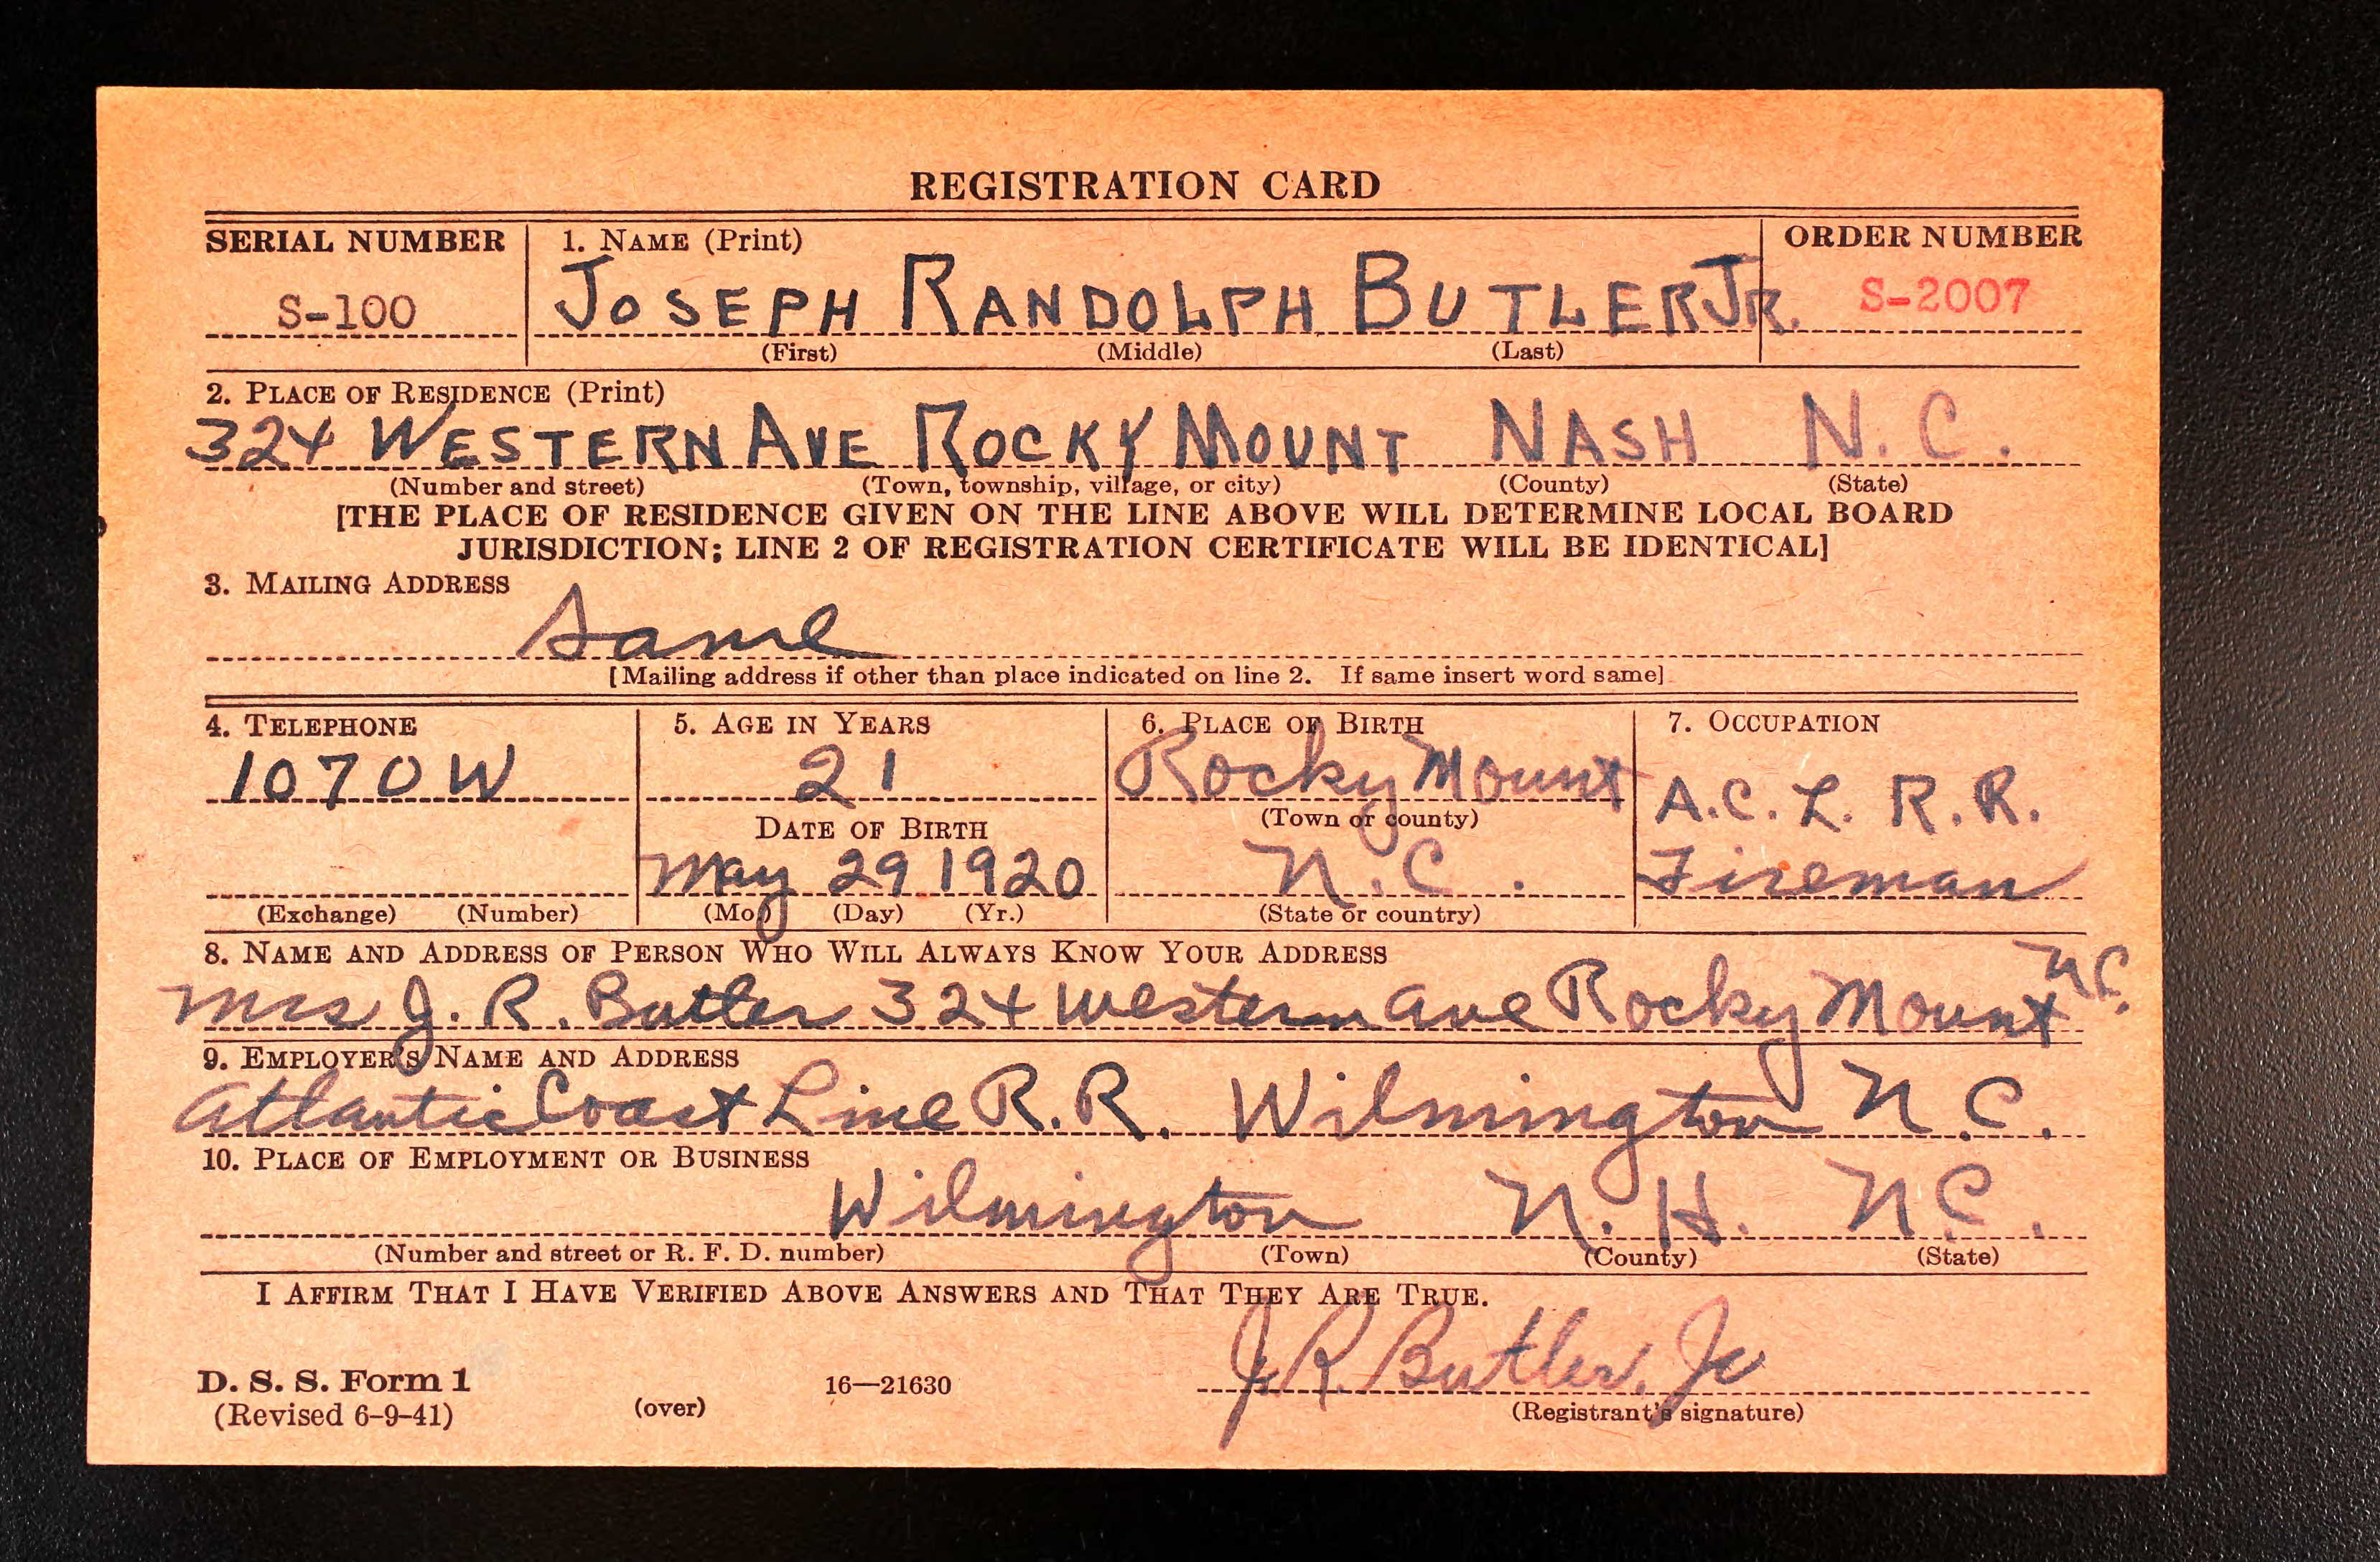 REGISTRATION CARD
SERIAL NUMBER 1. NAME (Print) ORDER NUMBER
S-100 JOSEPH RANDOLPH BUTLER JR. S-2007
(First) (Middle) (Last)
2. PLACE OF RESIDENCE (Print)
324 WESTERN AVE ROCKY MOUNT NASH N. C.
(Number and street) (Town, township, village, or city) (County) (State)
[THE PLACE OF RESIDENCE GIVEN ON THE LINE ABOVE WILL DETERMINE LOCAL BOARD
JURISDICTION; LINE 2 OF REGISTRATION CERTIFICATE WILL BE IDENTICAL]
3. MAILING ADDRESS
Same
[Mailing address if other than place indicated on line 2. If same insert word same]
4. TELEPHONE 5. AGE IN YEARS 6. PLACE OF BIRTH 7. OCCUPATION
1070W 21 Rocky Mount A.C. L. R.R.
(Town or county)
DATE OF BIRTH
May 29 1920 N.C. Fireman
(Exchange) (Number) (Mo.) (Day) (Yr.) (State or country)
8. NAME AND ADDRESS OF PERSON WHO WILL ALWAYS KNOW YOUR ADDRESS
Mrs J. R. Butler 324 Western Ave Rocky Mount N.C.
9. EMPLOYER'S NAME AND ADDRESS
Atlantic Coast Line R.R. Wilmington N.C.
10. PLACE OF EMPLOYMENT OR BUSINESS
Wilmington N. H. N.C.
(Number and street or R. F. D. number) (Town) (County) (State)
I AFFIRM THAT I HAVE VERIFIED ABOVE ANSWERS AND THAT THEY ARE TRUE.
J. R. Butler, Jr
D. S. S. Form 1 16—21630
(Revised 6-9-41) (over) (Registrant's signature)